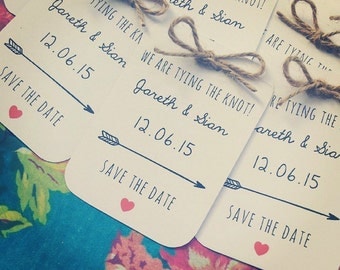 WE ARE TYING THE KNOT!
Gareth & Sian
12.06.15
SAVE THE DATE
WE ARE TYING THE KNOT!
Gareth & Sian
12.06.15
SAVE THE DATE
12.06.15
SAVE THE DATE